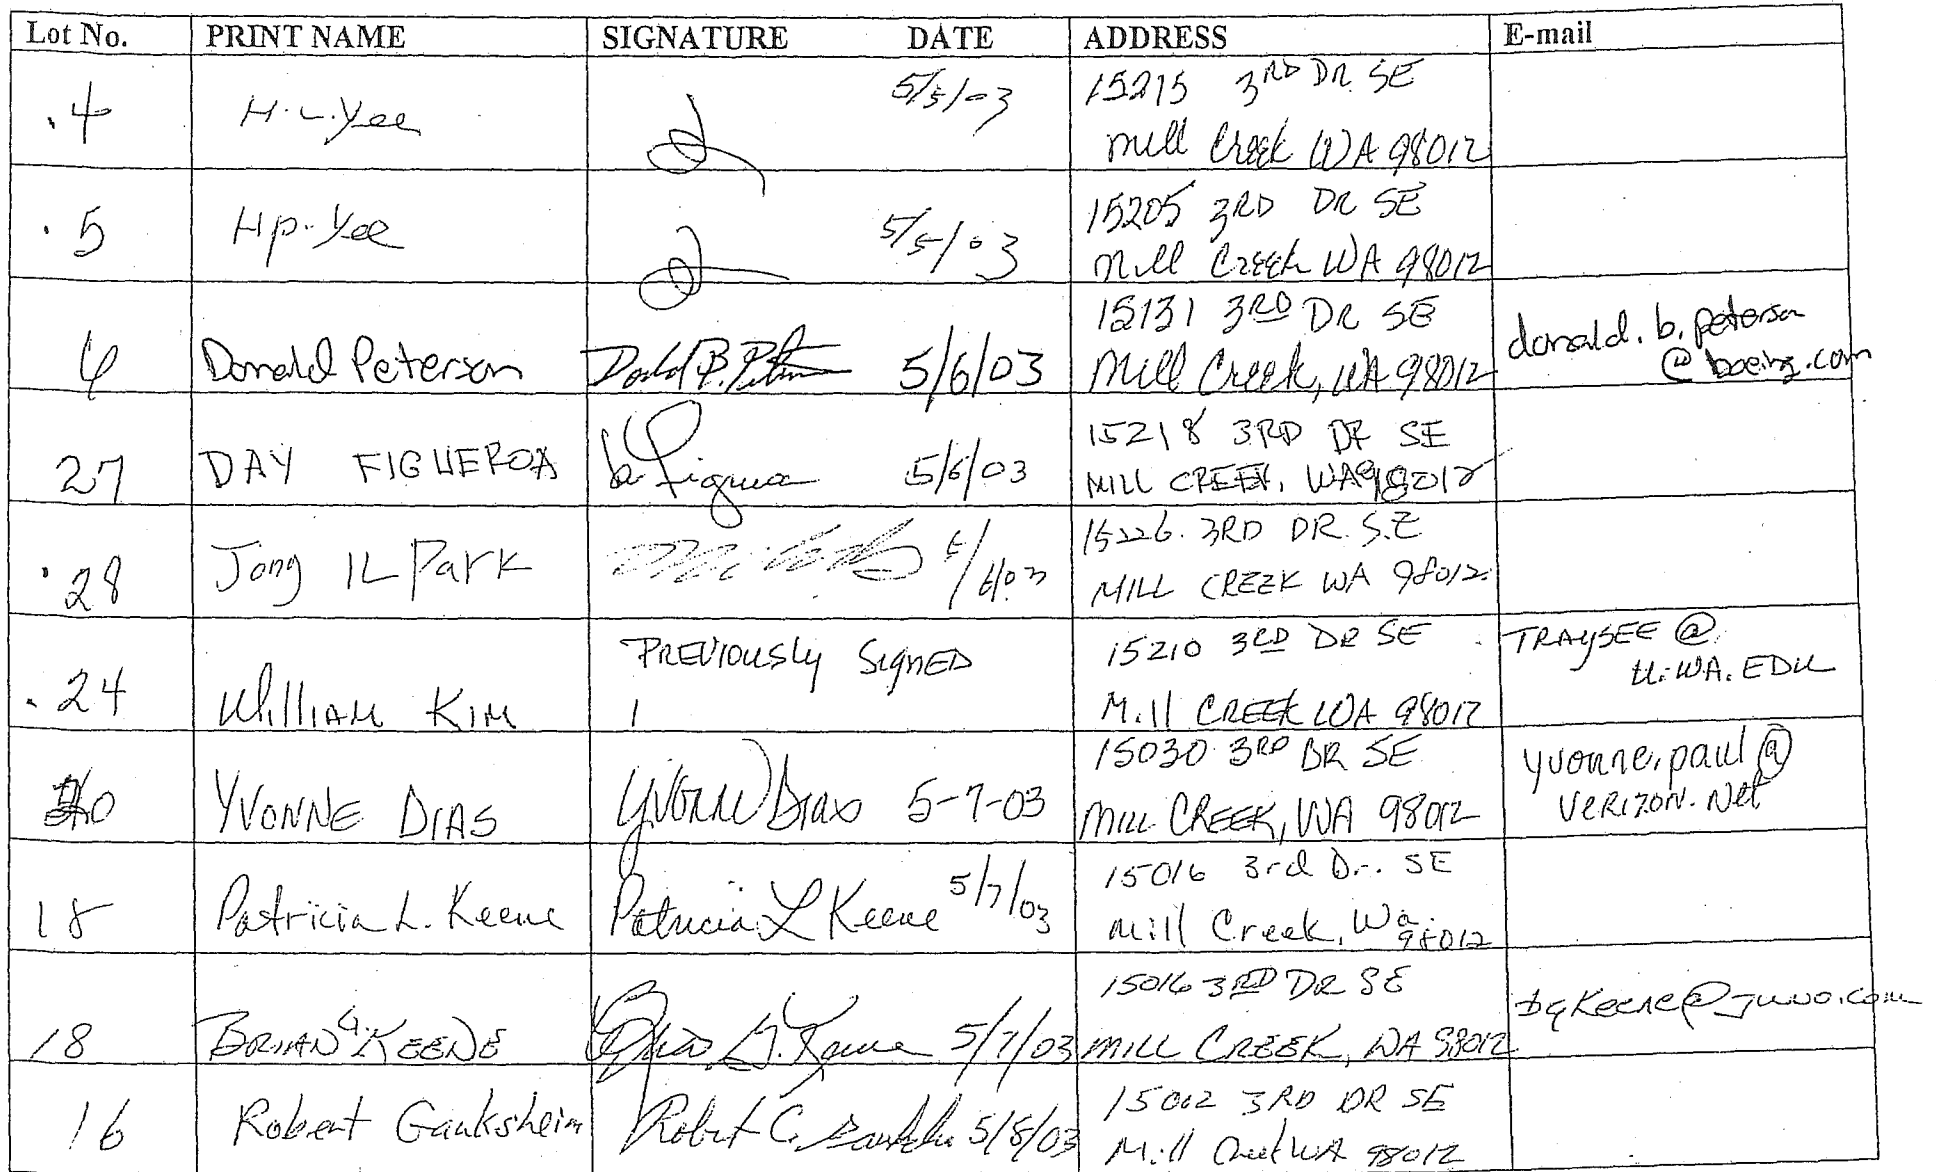 Lot No. PRINT NAME SIGNATURE DATE ADDRESS E-mail
.4 H.L.Yee 5/5/03 15215 3RD DR. SE
Mill Creek WA 98012
.5 Hp.Yee 5/5/03 15205 3RD DR SE
Mill Creek WA 98012
6 Donald Peterson Donald B. Peterson 5/6/03 15131 3RD DR SE
Mill Creek, WA 98012
donald.b.peterson
@boeing.com
27 DAY FIGUEROA Figueroa 5/6/03 15218 3RD DR SE
MILL CREEK, WA 98012
.28 Jong IL Park 15226. 3RD DR. S.E
MILL CREEK WA 98012.
.24 William Kim PREVIOUSLY SIGNED 15210 3RD DR SE
Mill CREEK WA 98012
TRAYSEE @
U.WA.EDU
YVONNE DIAS Yvonne Dias 5-7-03 15030 3RD DR SE
MILL CREEK, WA 98012
yvonne.paul@
VERIZON.Net
18 Patricia L. Keene Patricia L Keene 5/7/03 15016 3rd Dr. SE
Mill Creek, Wa.
98012
18 BRIAN G. KEENE Brian G. Keene 5/7/03 15016 3RD DR SE
MILL CREEK, WA 98012
bgKeene@juno.com
16 Robert Gauksheim Robert C. 5/8/03 15012 3RD DR SE
Mill Creek WA 98012